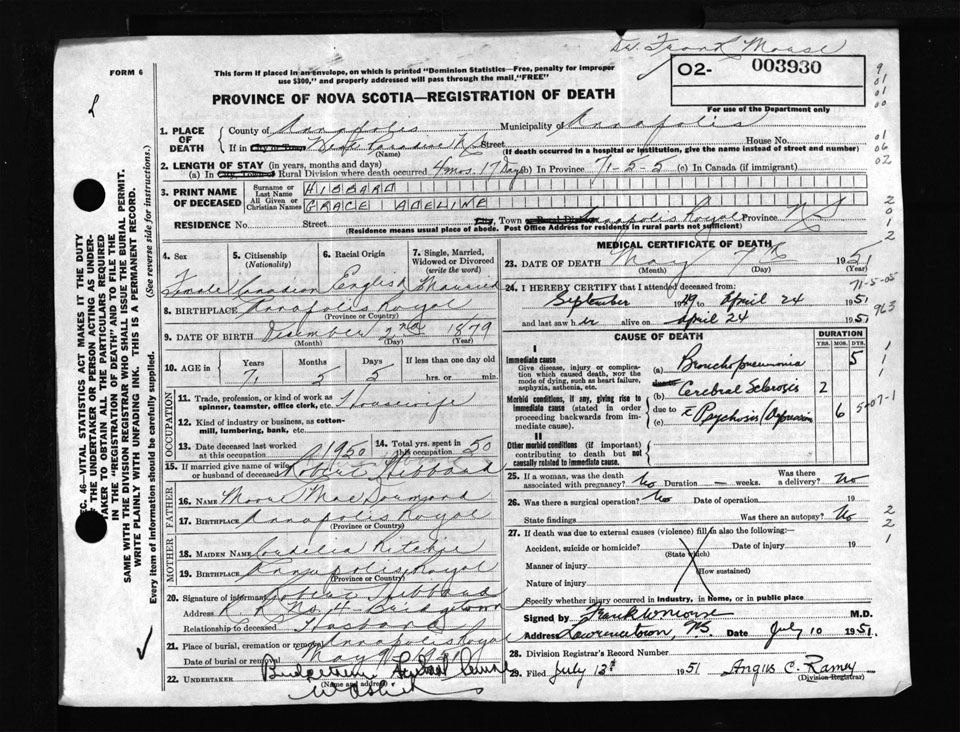 Dr. Frank Morse
FORM 6
This form if placed in an envelope, on which is printed "Dominion Statistics—Free, penalty for improper
use $300," and properly addressed will pass through the mail, "FREE"
O2- 003930
For use of the Department only
PROVINCE OF NOVA SCOTIA—REGISTRATION OF DEATH
1. PLACE OF DEATH
County of Annapolis Municipality of Annapolis
If in City or Town West Paradise N.S. Street House No.
(Name) (If death occurred in a hospital or institution, give the name instead of street and number)
2. LENGTH OF STAY (in years, months and days)
(a) In City, Town or Rural Division where death occurred 4 mos. 17 Days (b) In Province 71-5-5 (c) In Canada (if immigrant)
3. PRINT NAME OF DECEASED
Surname or Last Name HIBBARD
All Given or Christian Names GRACE ADELINE
RESIDENCE No. Street City, Town or Rural Division Annapolis Royal Province N S
(Residence means usual place of abode. Post Office Address for residents in rural parts not sufficient)
4. Sex Female
5. Citizenship (Nationality) Canadian
6. Racial Origin English
7. Single, Married, Widowed or Divorced (write the word) Married
8. BIRTHPLACE Annapolis Royal
(Province or Country)
9. DATE OF BIRTH December 2nd 1879
(Month) (Day) (Year)
10. AGE in Years 71 Months 5 Days 5 If less than one day old hrs. or min.
OCCUPATION
11. Trade, profession, or kind of work as spinner, teamster, office clerk, etc. Housewife
12. Kind of industry or business, as cotton-mill, lumbering, bank, etc.
13. Date deceased last worked at this occupation 1950
14. Total yrs. spent in this occupation 50
15. If married give name of wife or husband of deceased Robert Hibbard
FATHER
16. NAME
17. BIRTHPLACE Annapolis Royal
(Province or Country)
MOTHER
18. MAIDEN NAME Cordelia Ritchie
19. BIRTHPLACE Annapolis Royal
(Province or Country)
20. Signature of informant Robert Hibbard
Address R. R. No. 4 - Bridgetown
Relationship to deceased Husband
21. Place of burial, cremation or removal Annapolis Royal
Date of burial or removal May 9
22. UNDERTAKER Bridgetown
(Name and address)
MEDICAL CERTIFICATE OF DEATH
23. DATE OF DEATH May 7th 1951
(Month) (Day) (Year)
24. I HEREBY CERTIFY that I attended deceased from: 71-5-05
September 1949 to April 24 1951
and last saw her alive on April 24 1951
963
CAUSE OF DEATH
DURATION
YRS. MOS. DYS.
I
Immediate cause
Give disease, injury or complication which caused death, not the mode of dying, such as heart failure, asphyxia, asthenia, etc.
(a) Bronchopneumonia 5
due to
(b) Cerebral Sclerosis 2
Morbid conditions, if any, giving rise to immediate cause (stated in order proceeding backwards from immediate cause).
due to
(c) c Psychosis/Depression 6
5-07-1
II
Other morbid conditions (if important) contributing to death but not causally related to immediate cause.
25. If a woman, was the death associated with pregnancy? No Duration — weeks. Was there a delivery? No
26. Was there a surgical operation? No Date of operation 19
State findings Was there an autopsy? No
27. If death was due to external causes (violence) fill in also the following:—
Accident, suicide or homicide? Date of injury 19
(State which)
Manner of injury
(How sustained)
Nature of injury
Specify whether injury occurred in industry, in home, or in public place
Signed by Frank W Morse M.D.
Address Lawrencetown, NS Date July 10 1951.
28. Division Registrar's Record Number
29. Filed July 13th 1951 Angus C. Ramey
(Division Registrar)
SEC. 46—VITAL STATISTICS ACT MAKES IT THE DUTY
OF THE UNDERTAKER OR PERSON ACTING AS UNDER-
TAKER TO OBTAIN ALL THE PARTICULARS REQUIRED
IN THE "REGISTRATION OF DEATH" AND TO FILE THE
SAME WITH THE DIVISION REGISTRAR WHO SHALL ISSUE THE BURIAL PERMIT.
WRITE PLAINLY WITH UNFADING INK. THIS IS A PERMANENT RECORD.
Every item of information should be carefully supplied. (See reverse side for instructions.)